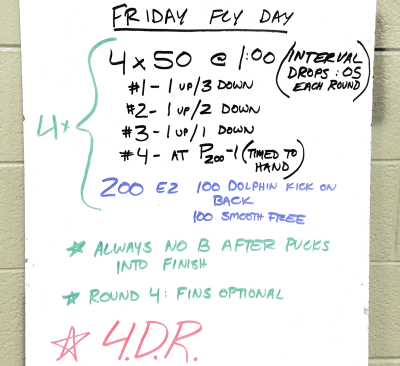 FRIDAY FLY DAY
4 x 50 @ 1:00 (INTERVAL DROPS :05 EACH ROUND)
#1 - 1 UP/3 DOWN
#2 - 1 UP/2 DOWN
#3 - 1 UP/1 DOWN
#4 - AT P200-1 (TIMED TO HAND)
4x
200 EZ 100 DOLPHIN KICK ON BACK
100 SMOOTH FREE
ALWAYS NO B AFTER PUCKS
INTO FINISH
ROUND 4: FINS OPTIONAL
4.D.R.